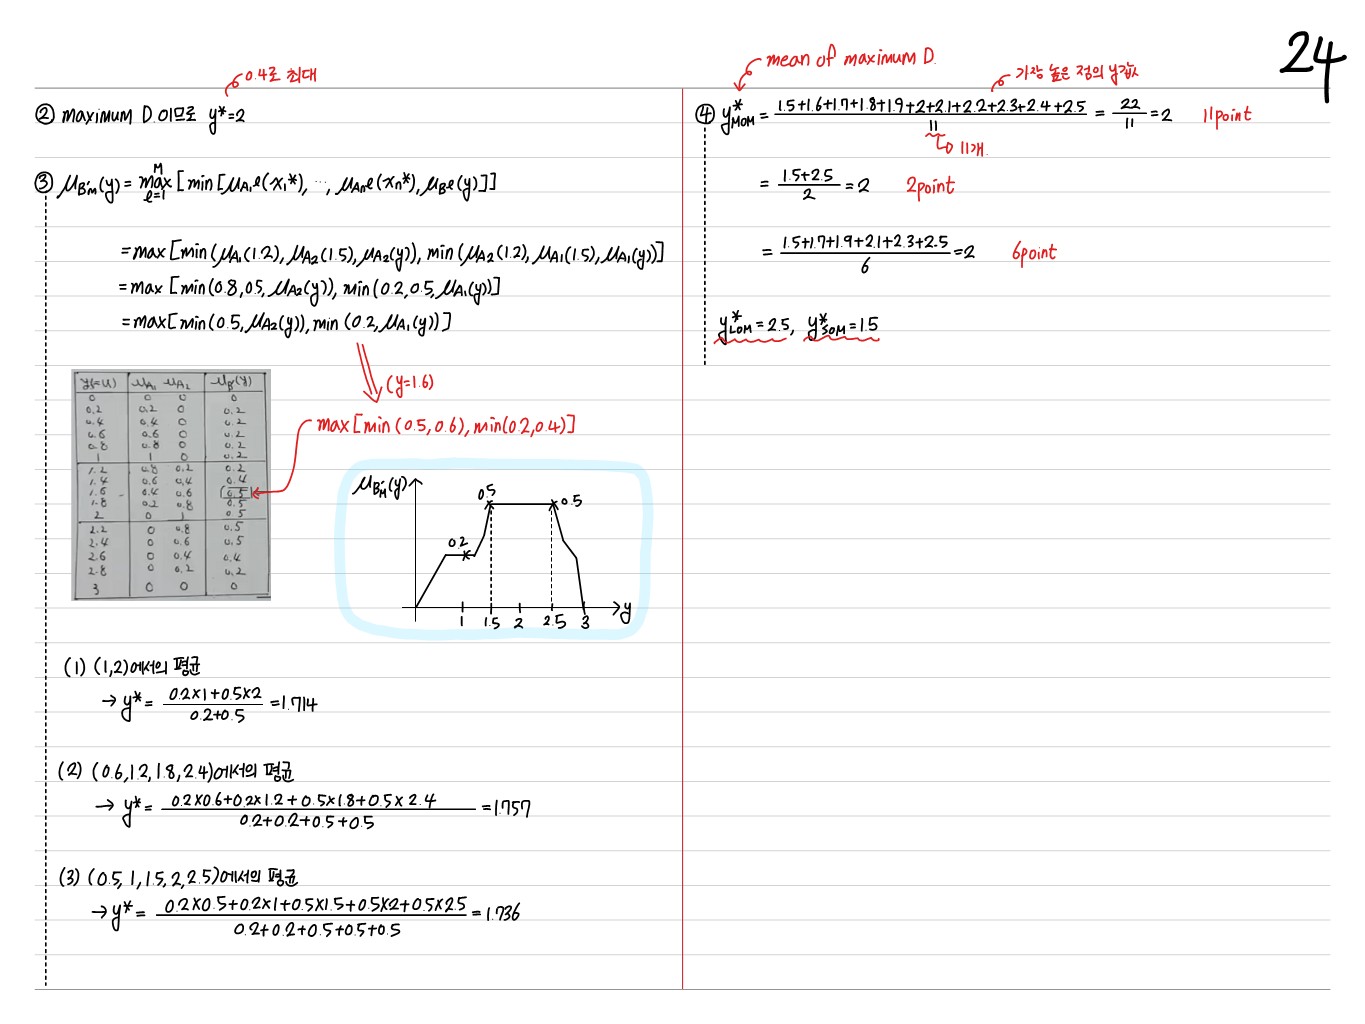 24
0.4로 최대
② maximum D.이므로 y*=2
③ μB'M(y) = max(ℓ=1, M) [min[μA₁ℓ(x₁*), ..., μAnℓ(xn*), μBℓ(y)]]
=max[min(μA₁(1.2), μA₂(1.5), μA₂(y)), min(μA₂(1.2), μA₁(1.5), μA₁(y)]
=max [min(0.8, 0.5, μA₂(y)), min(0.2, 0.5, μA₁(y)]
=max[min(0.5, μA₂(y)), min(0.2, μA₁(y))]
(y=1.6)
max[min(0.5, 0.6), min(0.2, 0.4)]
y(=u) μA₁ μA₂ μB'(y)
0 0 0 0
0.2 0.2 0 0.2
0.4 0.4 0 0.2
0.6 0.6 0 0.2
0.8 0.8 0 0.2
1 1 0 0.2
1.2 0.8 0.2 0.2
1.4 0.6 0.4 0.4
1.6 0.4 0.6 0.5
1.8 0.2 0.8 0.5
2 0 1 0.5
2.2 0 0.8 0.5
2.4 0 0.6 0.5
2.6 0 0.4 0.4
2.8 0 0.2 0.2
3 0 0 0
μB'M(y)
0.5 0.5
0.2
1 1.5 2 2.5 3 y
(1) (1,2)에서의 평균
→ y* = (0.2×1+0.5×2)/(0.2+0.5) = 1.714
(2) (0.6, 1.2, 1.8, 2.4)에서의 평균
→ y* = (0.2×0.6+0.2×1.2+0.5×1.8+0.5×2.4)/(0.2+0.2+0.5+0.5) = 1.757
(3) (0.5, 1, 1.5, 2, 2.5)에서의 평균
→ y* = (0.2×0.5+0.2×1+0.5×1.5+0.5×2+0.5×2.5)/(0.2+0.2+0.5+0.5+0.5) = 1.736
mean of maximum D.
가장 높은 점의 y값
④ y*MOM = (1.5+1.6+1.7+1.8+1.9+2+2.1+2.2+2.3+2.4+2.5)/11 = 22/11 = 2 11point
11개.
= (1.5+2.5)/2 = 2 2point
= (1.5+1.7+1.9+2.1+2.3+2.5)/6 = 2 6point
y*LOM = 2.5, y*SOM = 1.5